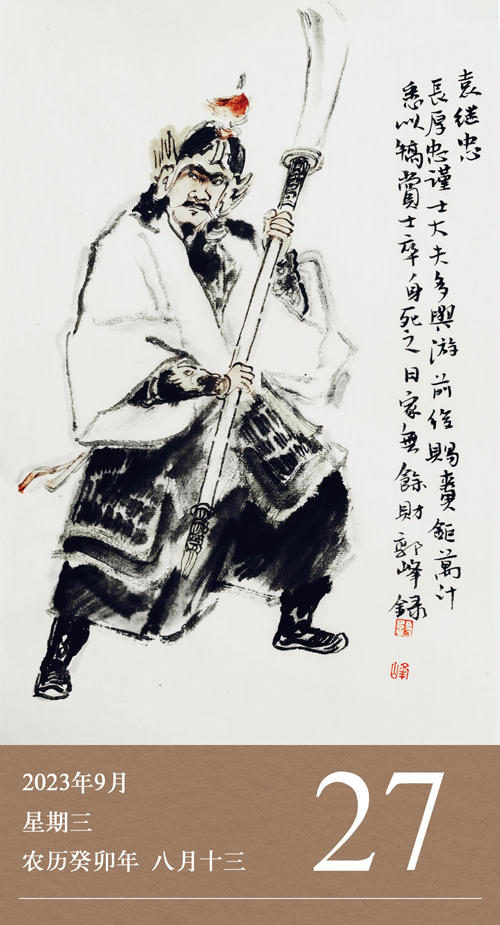 袁继忠
長厚忠謹士大夫多與游前後賜賚鉅萬计
悉以犒賞士卒身死之日家無餘財郭峰録
峰
2023年9月
星期三
农历癸卯年 八月十三
27